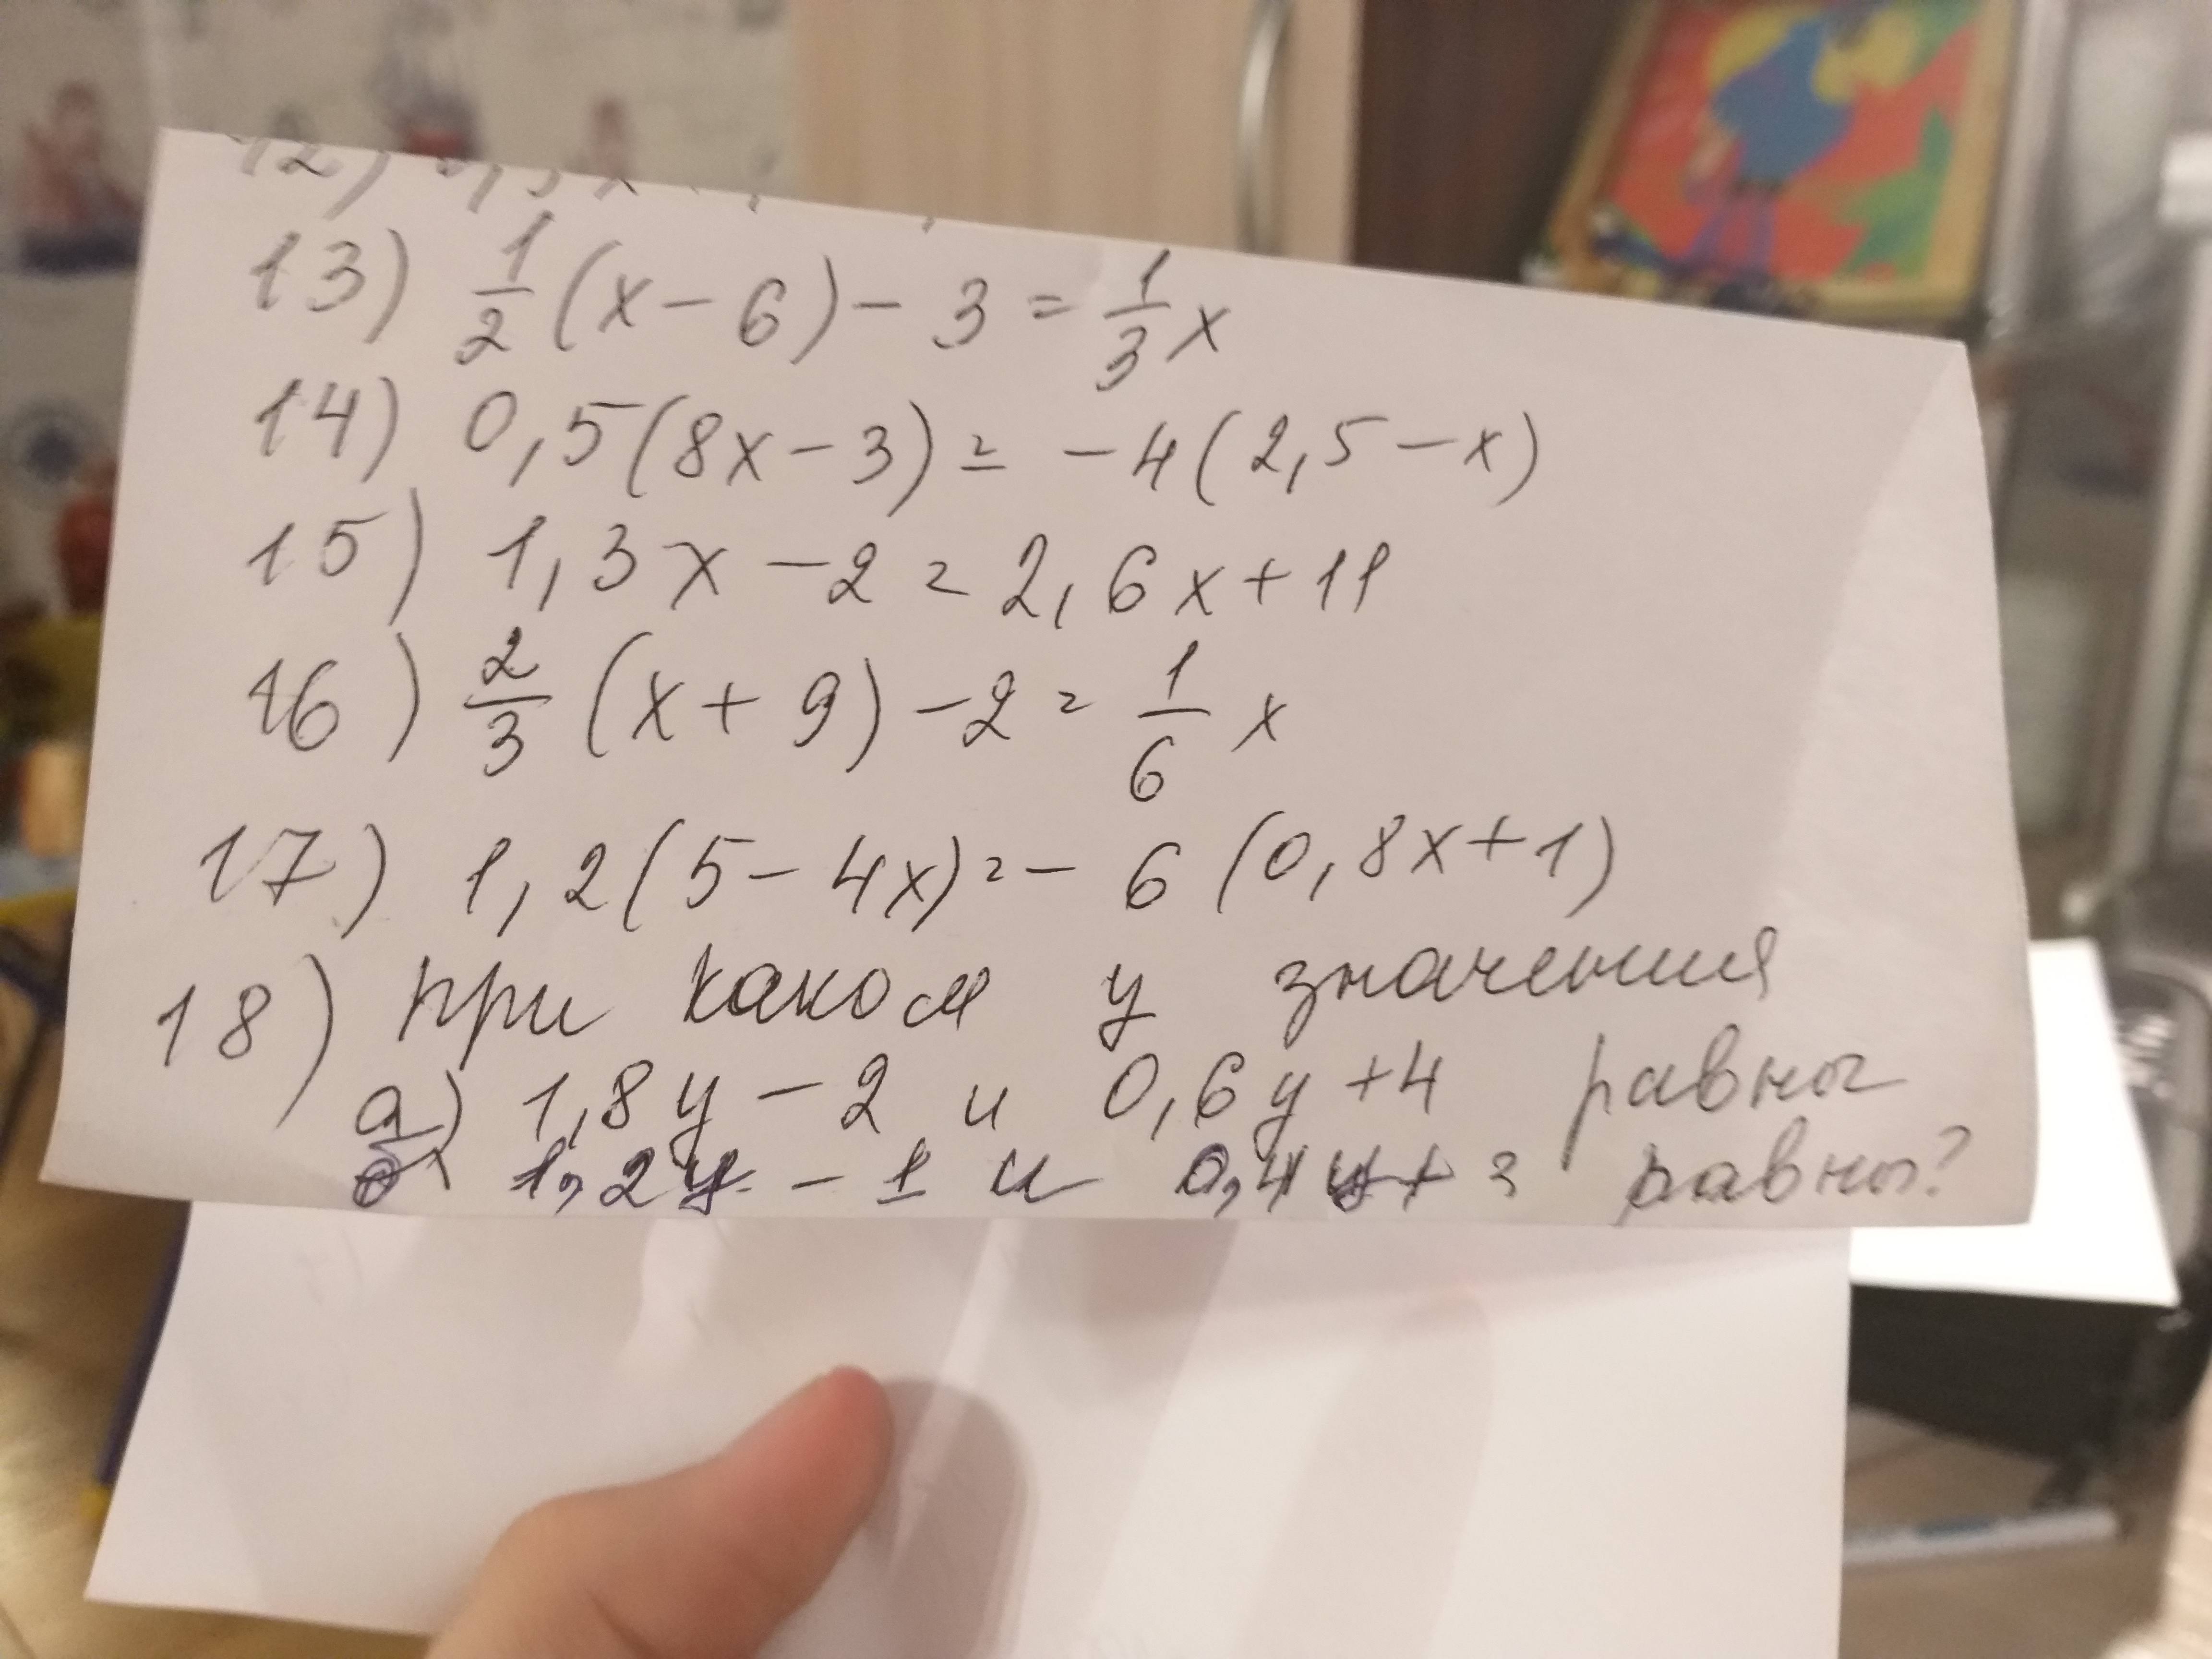 12)
13) 1/2 (x - 6) - 3 = 1/3 x
14) 0,5(8x - 3) = -4(2,5 - x)
15) 1,3x - 2 = 2,6x + 11
16) 2/3 (x + 9) - 2 = 1/6 x
17) 1,2(5 - 4x) = - 6(0,8x + 1)
18) при каком y значения
а) 1,8y - 2 и 0,6y + 4 равны
б) 1,2y - 1 и 0,4y + 3 равны?